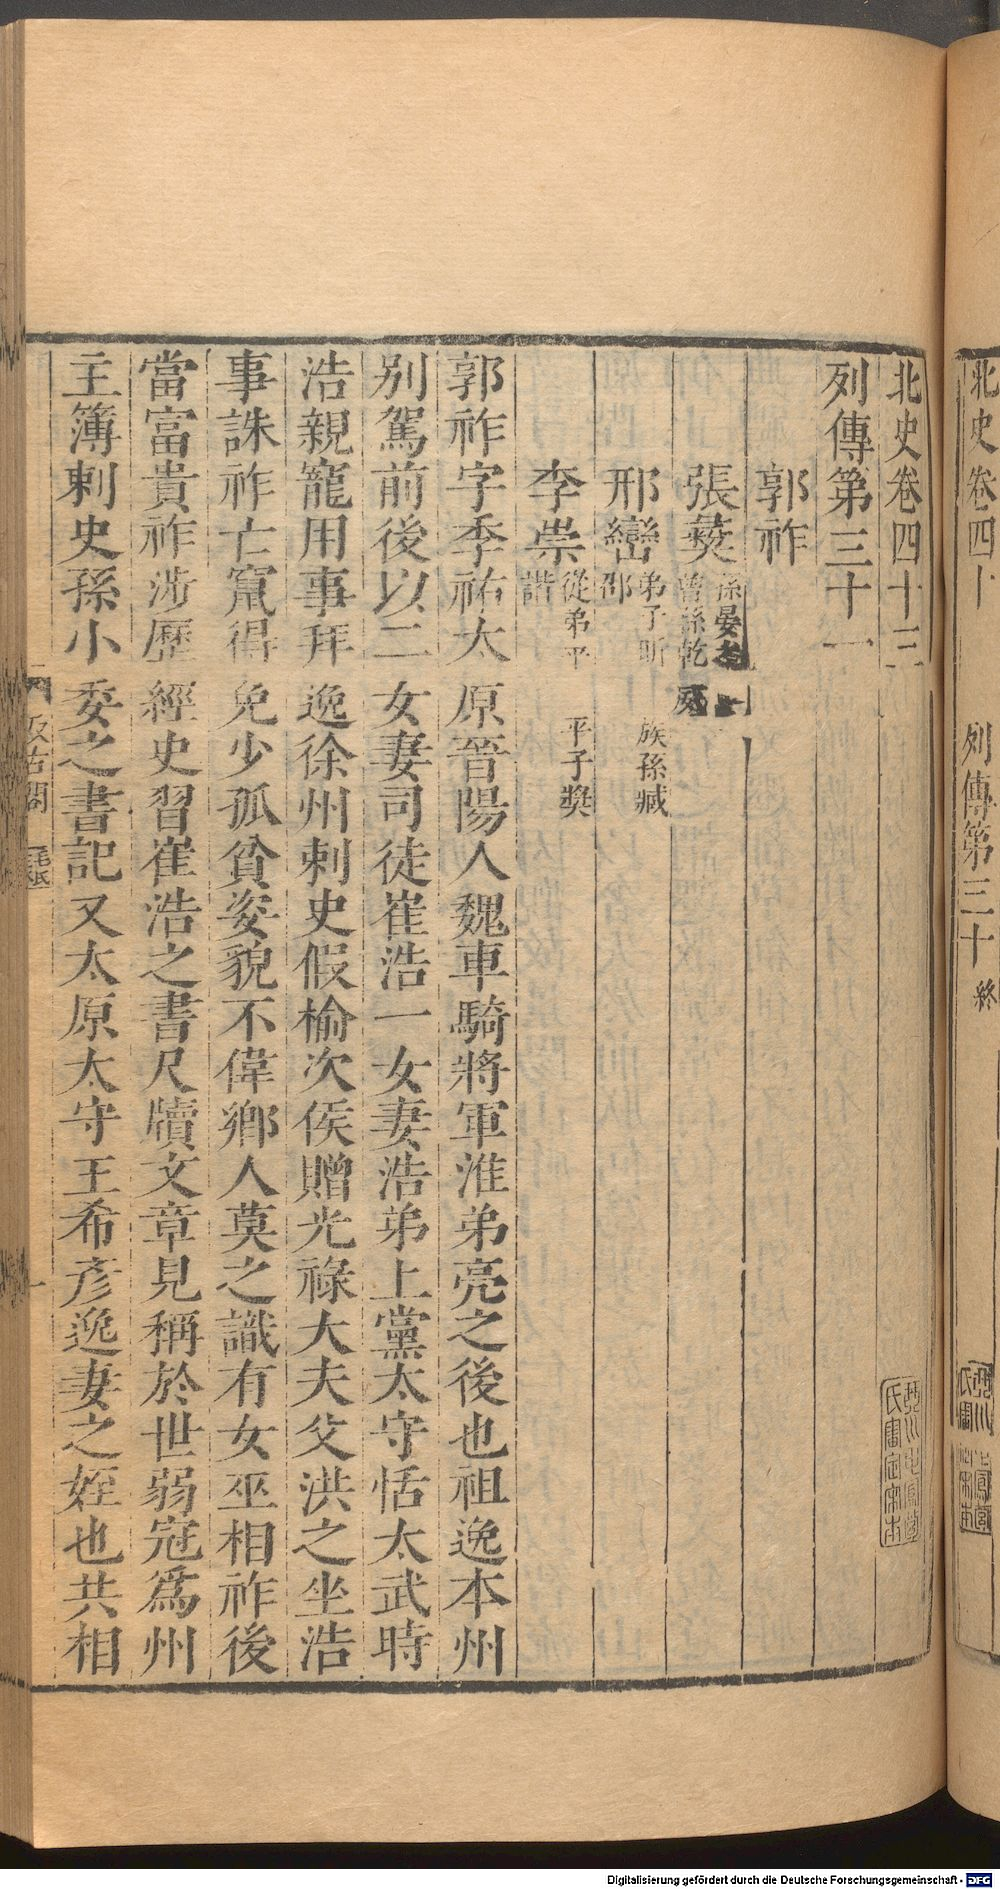 北史卷四十
列傳第三十 終
北史卷四十三
列傳第三十一
郭祚
張彝 孫晏之 曾孫乾威
邢巒 弟子昕 族孫臧 邵
李崇 從弟平 平子奬 諧
郭祚字季祐太原晉陽人魏車騎將軍淮弟亮之後也祖逸本州
別駕前後以二女妻司徒崔浩一女妻浩弟上黨太守恬太武時
浩親寵用事拜逸徐州刺史假榆次侯贈光祿大夫父洪之坐浩
事誅祚亡竄得免少孤貧姿貌不偉鄉人莫之識有女巫相祚後
當富貴祚涉歷經史習崔浩之書尺牘文章見稱於世弱冠爲州
主簿刺史孫小委之書記又太原太守王希彥逸妻之姪也共相
汲古閣
毛氏
一
Digitalisierung gefördert durch die Deutsche Forschungsgemeinschaft - DFG